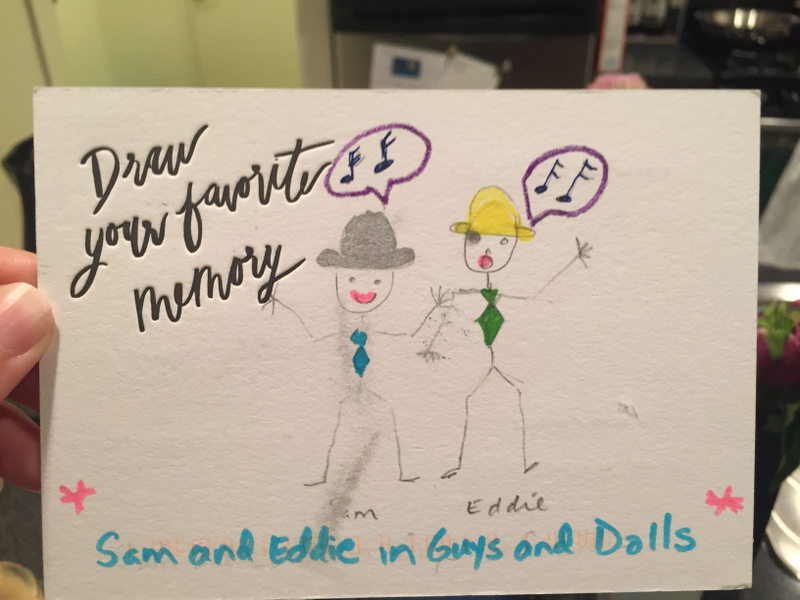 Draw
your favorite
memory
Eddie
Sam and Eddie in Guys and Dolls